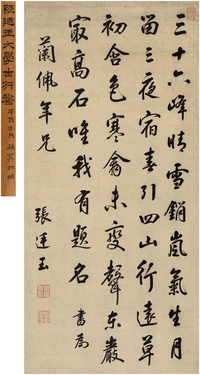 三十六峰晴雪銷嵐氣生月
留三夜宿春引四山行遠草
初含色寒禽未變聲東巖
最高石唯我有題名 書為
蘭佩年兄
張廷玉
張廷玉大學士行書